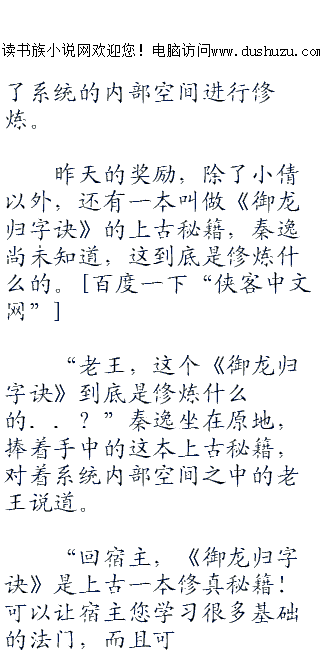 读书族小说网欢迎您！电脑访问www.dushuzu.com
了系统的内部空间进行修
炼。
昨天的奖励，除了小倩
以外，还有一本叫做《御龙
归字诀》的上古秘籍，秦逸
尚未知道，这到底是修炼什
么的。[百度一下“侠客中文
网”]
“老王，这个《御龙归
字诀》到底是修炼什么
的．．？”秦逸坐在原地，
捧着手中的这本上古秘籍，
对着系统内部空间之中的老
王说道。
“回宿主，《御龙归字
诀》是上古一本修真秘籍！
可以让宿主您学习很多基础
的法门，而且可